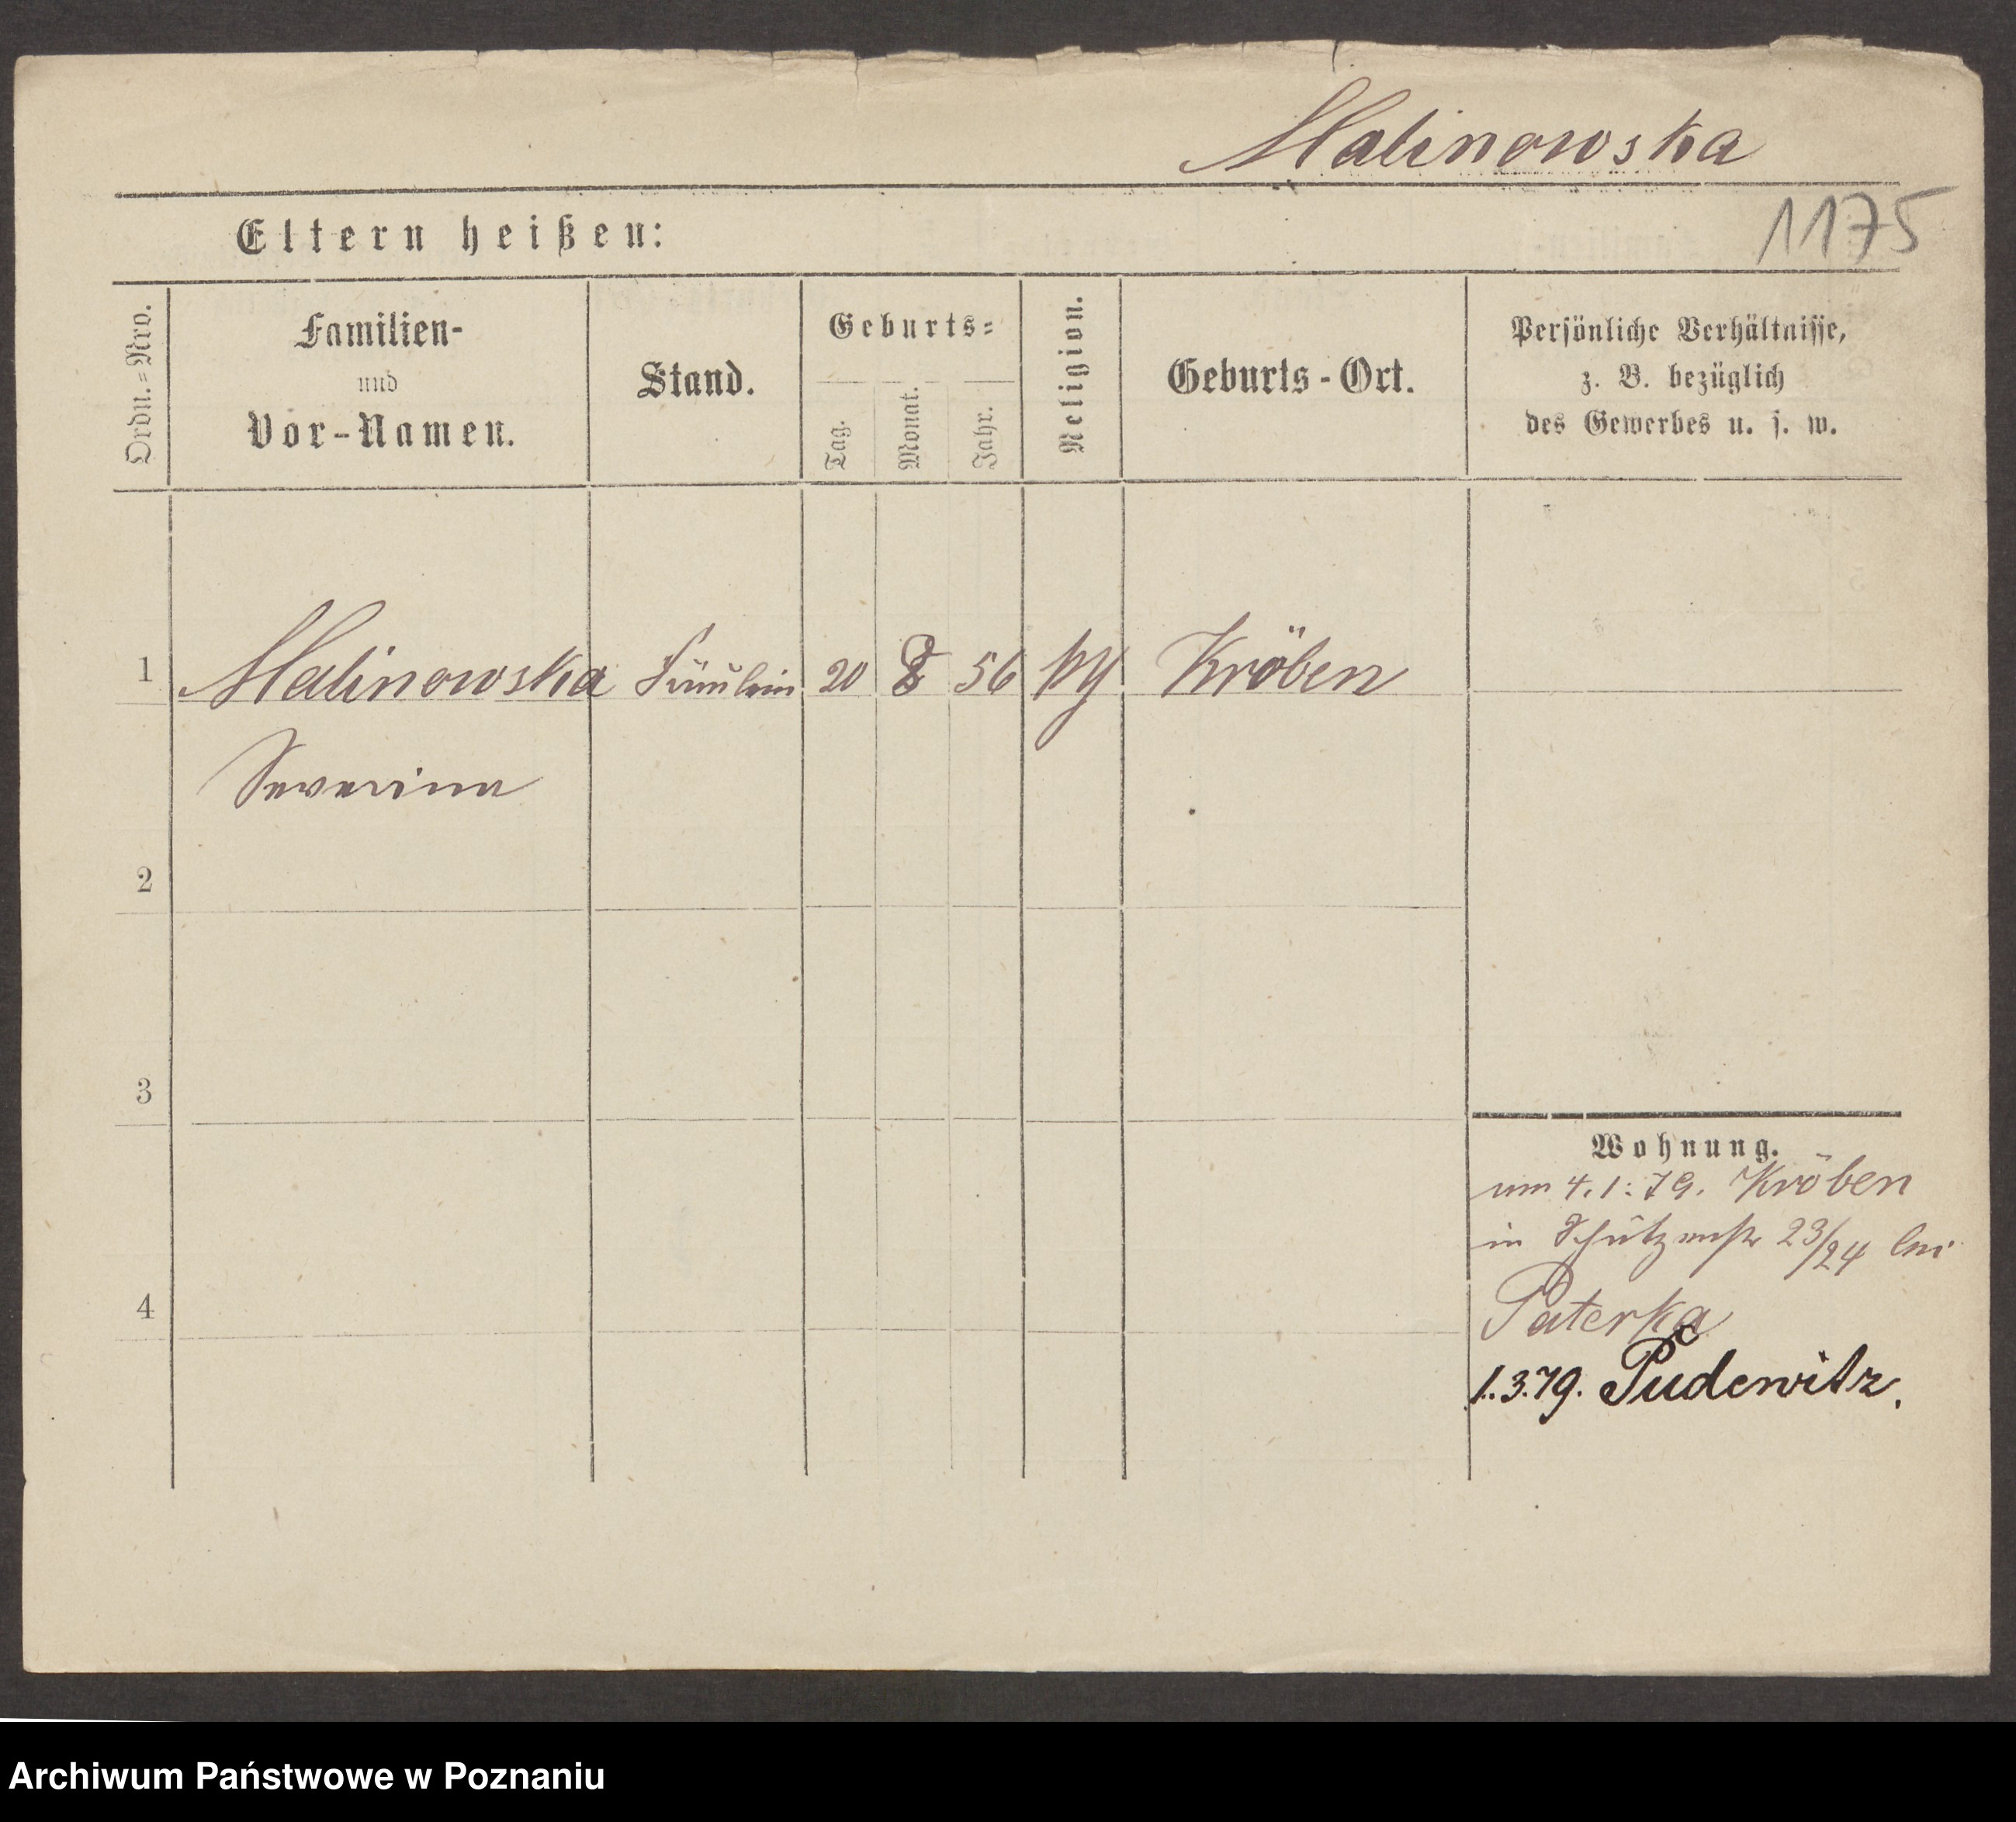 Malinowska
1175
Eltern heißen:
Ordn.=Nro.
Familien-
und
Vor-Namen.
Stand.
Geburts=
Tag.
Monat.
Jahr.
Religion.
Geburts-Ort.
Persönliche Verhältnisse,
z. B. bezüglich
des Gewerbes u. s. w.
1 Malinowska Fräulein 20 56 Kröben
Severina
2
3
4
Wohnung.
4.1.79. Kröben
in Schützenstr 23/24 bei
Paterka
1.3.79. Pudewitz.
Archiwum Państwowe w Poznaniu